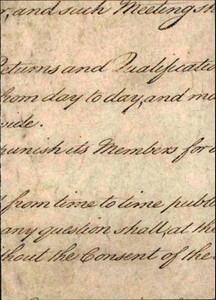 and such Meeting
Returns and Qualificatio
from day to day, and m
vide.
punish its Members for
from time to time publi
any question shall, at th
thout the Consent of the